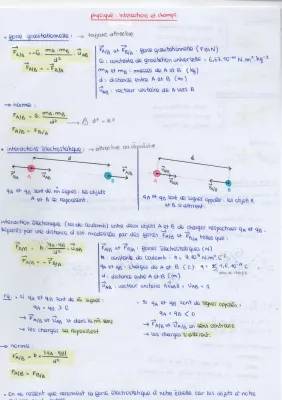 physique : interactions et champs
• force gravitationnelle : → toujours attractive
F⃗A/B = -G · mA · mB / d² · u⃗AB
F⃗A/B = - F⃗B/A
F⃗A/B et F⃗B/A : force gravitationnelle (F en N)
G : constante de gravitation universelle = 6,67.10⁻¹¹ N.m².kg⁻²
mA et mB : masses de A et B (kg)
d : distance entre A et B (m)
u⃗AB : vecteur unitaire de A vers B
→ norme :
FA/B = G · mA · mB / d²
FA/B = FB/A
• interactions électrostatique : → attractive ou répulsive
d
d
qA et qB sont de m̂ signes : les objets
A et B se repoussent.
qA et qB sont de signes opposés : les objets A
et B s'attirent
interaction électrique (loi de coulomb) entre deux objets A et B de charges respectives qA et qB,
séparés par une distance d est modélisée par des forces F⃗A/B et F⃗B/A telles que :
F⃗A/B = k · qA · qB / d² · u⃗AB
F⃗A/B = - F⃗B/A
F⃗A/B et F⃗B/A : forces électrostatiques (N)
k : constante de coulomb : k = 9.10⁹ N.m².C⁻²
qA et qB : charges de A et B (C)
d : distance entre A et B (m)
u⃗AB : vecteur unitaire
• si qA et qB sont de m̂ signe :
qA · qB > 0
→ F⃗A/B et u⃗AB dans le m̂ sens
→ les charges se repoussent
• si qA et qB sont de signes opposés :
qA · qB < 0
→ F⃗A/B et u⃗AB en sens contraire
→ les charges s'attirent.
→ norme :
FA/B = k · |qA · qB| / d²
FA/B = FB/A
• En ne ressent que rarement la force électrostatique à notre échelle car les objets à notre